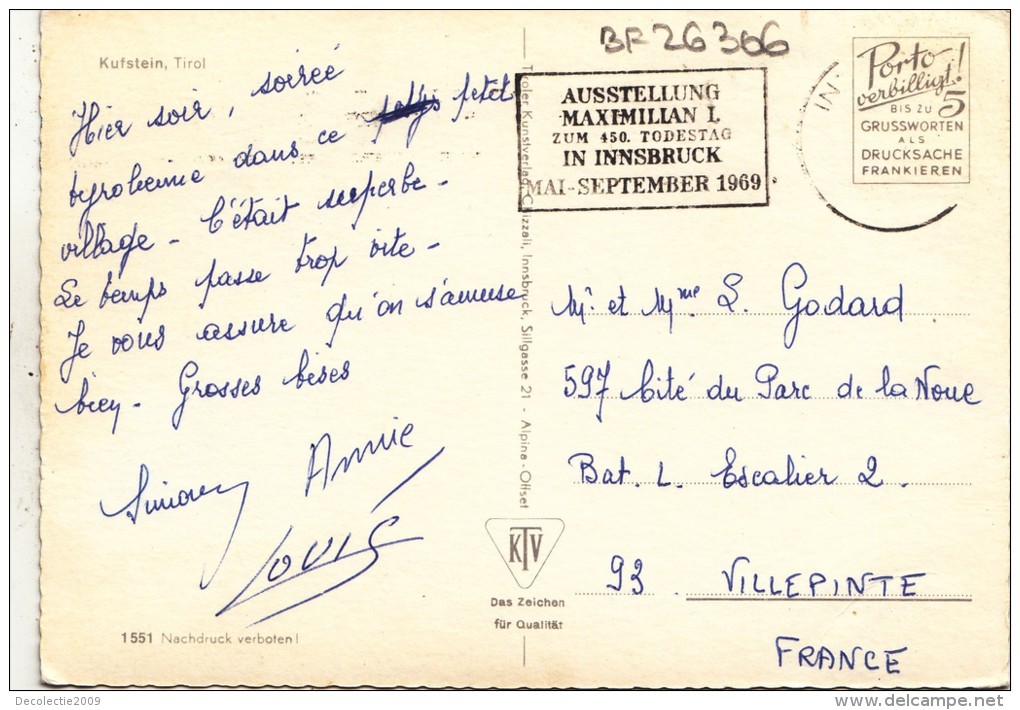 BF 26366
Kufstein, Tirol
Hier soir, soirée
tyrolienne dans ce petit
village - C'était superbe -
Le temps passe trop vite -
Je vous assure qu'on s'amuse
bien - Grosses bises
Simone Annie
Louis
1551 Nachdruck verboten!
Tiroler Kunstverlag Chizzali, Innsbruck, Sillgasse 21 - Alpina-Offset
KTV
Das Zeichen
für Qualität
AUSSTELLUNG
MAXIMILIAN I.
ZUM 450. TODESTAG
IN INNSBRUCK
MAI-SEPTEMBER 1969
IN
Porto
verbilligt!
BIS ZU 5
GRUSSWORTEN
ALS
DRUCKSACHE
FRANKIEREN
Mr. et Mme L. Godard
597 Cité du Parc de la Noue
Bat. L. Escalier 2.
93 VILLEPINTE
FRANCE
Decolectie2009
www.delcampe.net